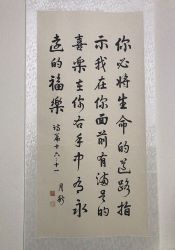 你必將生命的道路指
示我在你面前有滿足的
喜樂在你右手中有永
遠的福樂 詩篇十六·十一